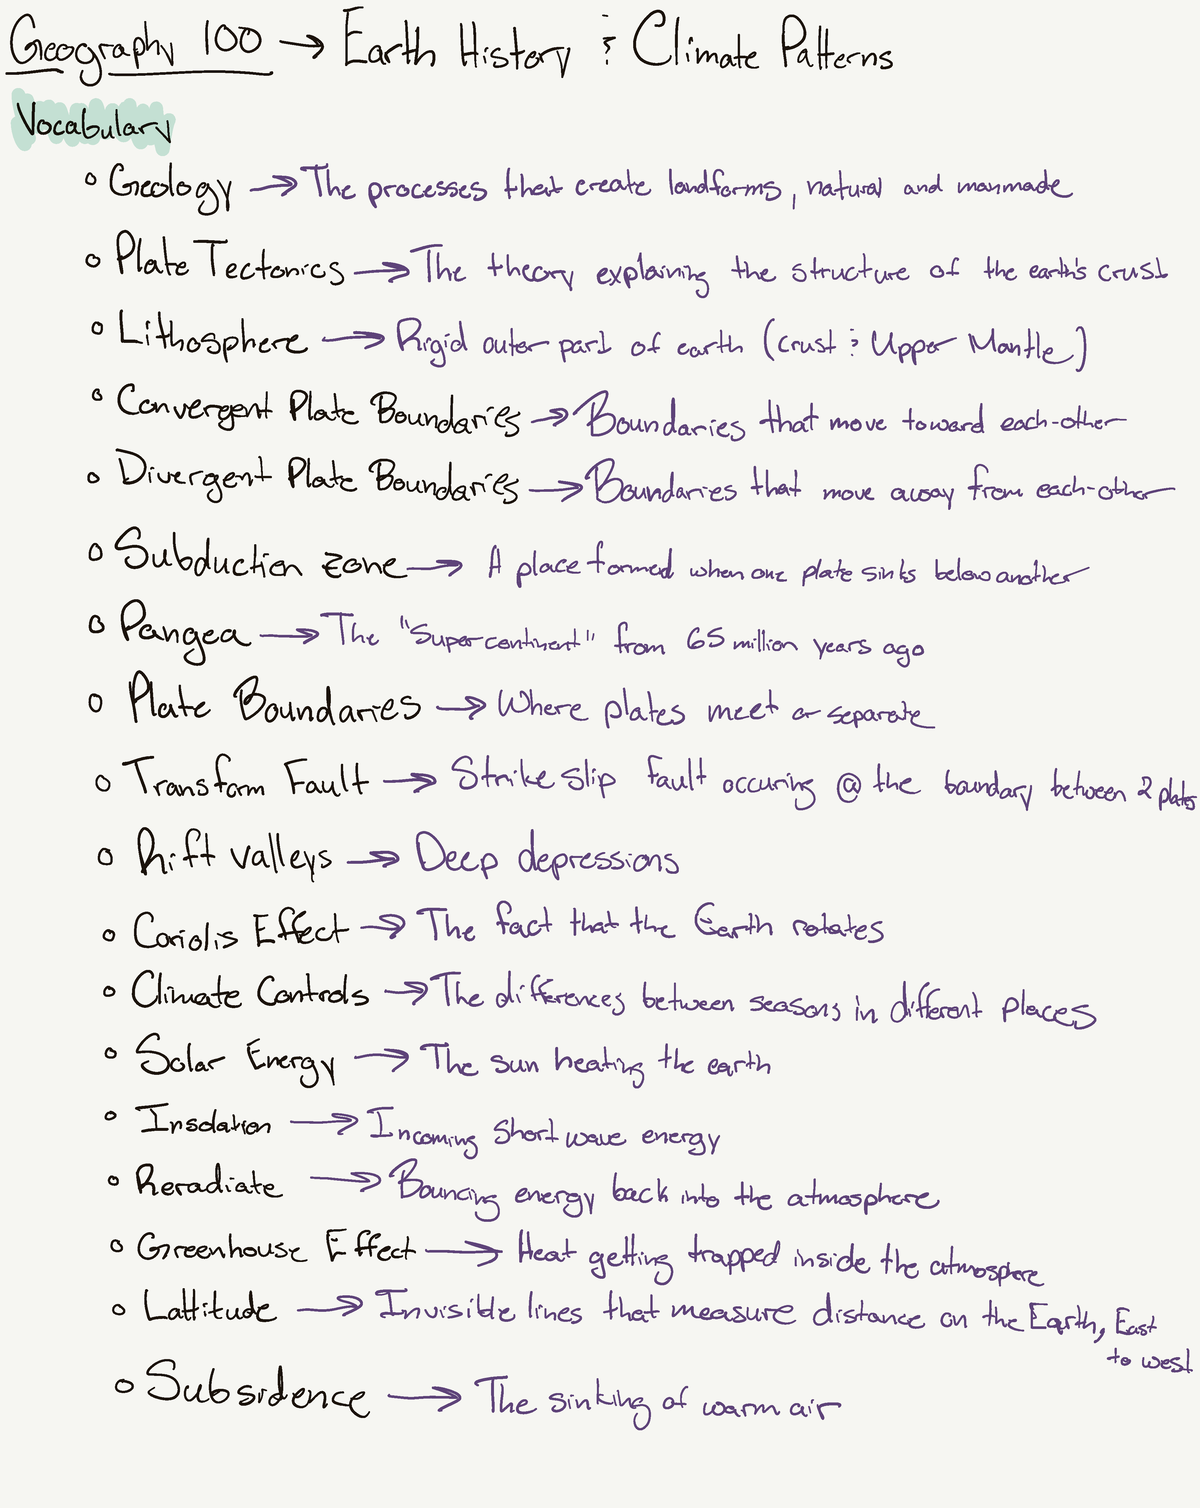 Geography 100 → Earth History & Climate Patterns
Vocabulary
○ Geology → The processes that create landforms, natural and manmade
○ Plate Tectonics → The theory explaining the structure of the earth's crust
○ Lithosphere → Rigid outer part of earth (crust & Upper Mantle)
○ Convergent Plate Boundaries → Boundaries that move toward each-other
○ Divergent Plate Boundaries → Boundaries that move away from each-other
○ Subduction zone → A place formed when one plate sinks below another
○ Pangea → The "Supercontinent" from 65 million years ago
○ Plate Boundaries → Where plates meet or separate
○ Transform Fault → Strike slip fault occuring @ the boundary between 2 plates
○ Rift valleys → Deep depressions
○ Coriolis Effect → The fact that the Earth rotates
○ Climate Controls → The differences between seasons in different places
○ Solar Energy → The sun heating the earth
○ Insolation → Incoming Short wave energy
○ Reradiate → Bouncing energy back into the atmosphere
○ Greenhouse Effect → Heat getting trapped inside the atmosphere
○ Lattitude → Invisible lines that measure distance on the Earth, East
to west
○ Subsidence → The sinking of warm air